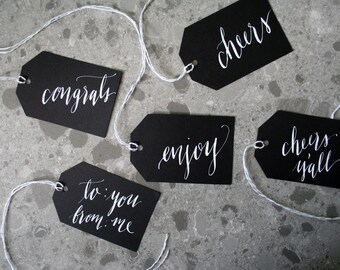 cheers
congrats
enjoy
cheers
y'all
to: you
from: me